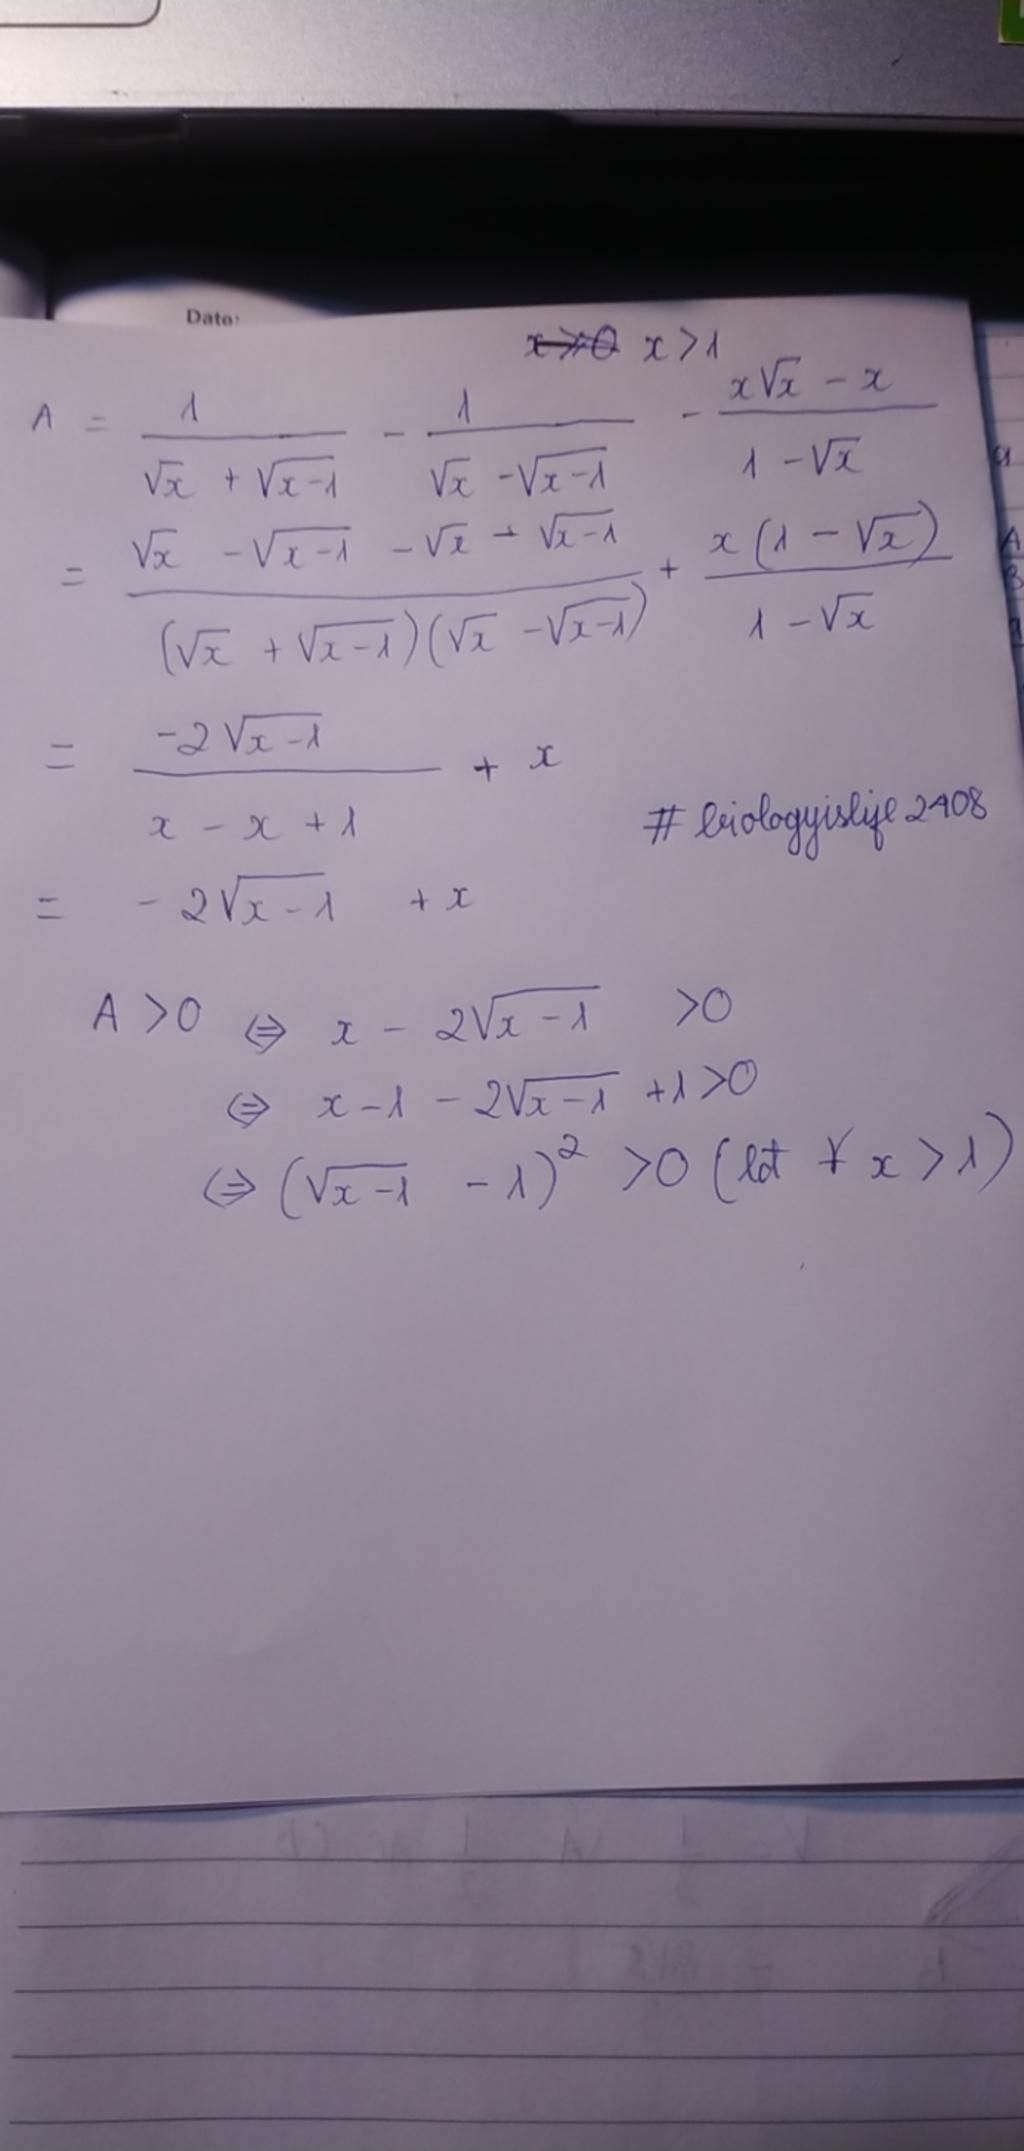 Date:
x>0 x>1
A = 1/(√x + √(x-1)) - 1/(√x - √(x-1)) - (x√x - x)/(1 - √x)
= (√x - √(x-1) - √x - √(x-1))/((√x + √(x-1))(√x - √(x-1))) + x(1 - √x)/(1 - √x)
= (-2√(x-1))/(x - x + 1) + x
#biologyislife2408
= -2√(x-1) + x
A >0 ⇔ x - 2√(x-1) >0
⇔ x-1 - 2√(x-1) +1>0
⇔ (√(x-1) - 1)² >0 (lđt ∀ x > 1)